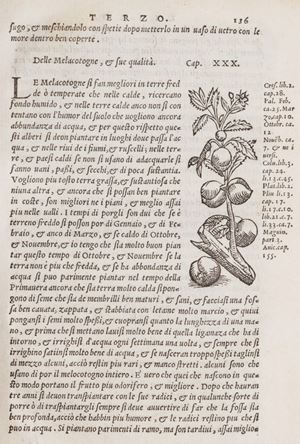 TERZO. 136
sugo, & meschiandolo con spetie dopo metterlo in un uaso di uetro con le
more dentro ben coperte.
Delle Melacotogne, & sue qualità. Cap. XXX.
LE Melacotogne si fan megliori in terre fred
de ò temperate che nelle calde, ricercano
fondo humido, & nelle terre calde anco non si con
tentano con l'humor del suolo che uogliono ancora
abbundanza di acqua, & per questo rispetto que=
sti alberi si deon piantare in luoghi doue passa l'ac
qua, & nelle riui de i fiumi, & ruscelli; nelle ter
re, & paesi caldi se non si usano di adacquarle si
fanno uani, passi, & secchi, & di poca sustantia.
Vogliono piu tosto terra grassa, & sustantiosa che
niuna altra, & ancora che si possan ben piantare
in coste, son migliori ne i piani, & meglio assai
piu nelle ualli. I tempi di porgli son dui che se è
terreno freddo si posson por di Gennaio, & di Feb
braio, & anco di Marzo, & se caldo di Ottobre,
& Nouembre, & io tengo che sia molto buon pian
tar questo tempo di Ottobre, & Nouembre se la
terra non è piu che fredda, & se ha abbondanza di
acqua si può parimente piantar nel tempo della
Primauera ancora che sia terra molto calda si pon=
gono di seme che sia de membrilli ben maturi, & sani, & facciasi una fos=
sa ben cauata, zappata, & stabbiata con letame molto marcio, & quiui
pongansi i semi molto spessi, & cuoprasi quanto la lunghezza di una ma=
no, & prima che si metta uisi molto bene di quella liganza che ho da
di intorno, & irrighisi d'acqua ogni settimana una uolta, & sempre che si
irrighino satiinsi molto bene di acqua, & se nasceran troppo spessi taglinsi
di mezzo alcuni, acciò restin piu rari, & manco stretti. alcuni sono che
usano di por il melocotogno intiero. E uero che quei che nascono in que=
sto modo portano il frutto piu odorifero, & migliore. Dopo che hauran
tre anni si deuon transpiantare con le sue radici, & in qualunche sorte di
porre ò di traspiantargli sempre si deue auuertire di far che la fossa sia
ben profonda, acciò che habbin piu humore, & le radici restino piu che si
può in acqua. Si piantano parimenti di ramo, ma son tardiui, assai migliò
Cres. lib.5.
cap.28.
Pal. Feb.
ca.25. Mar
zo. cap.10.
Ottob. ca.
12.
Nouẽb. ca.
7. & ui
uersi.
Colu. lib.5.
cap.10.